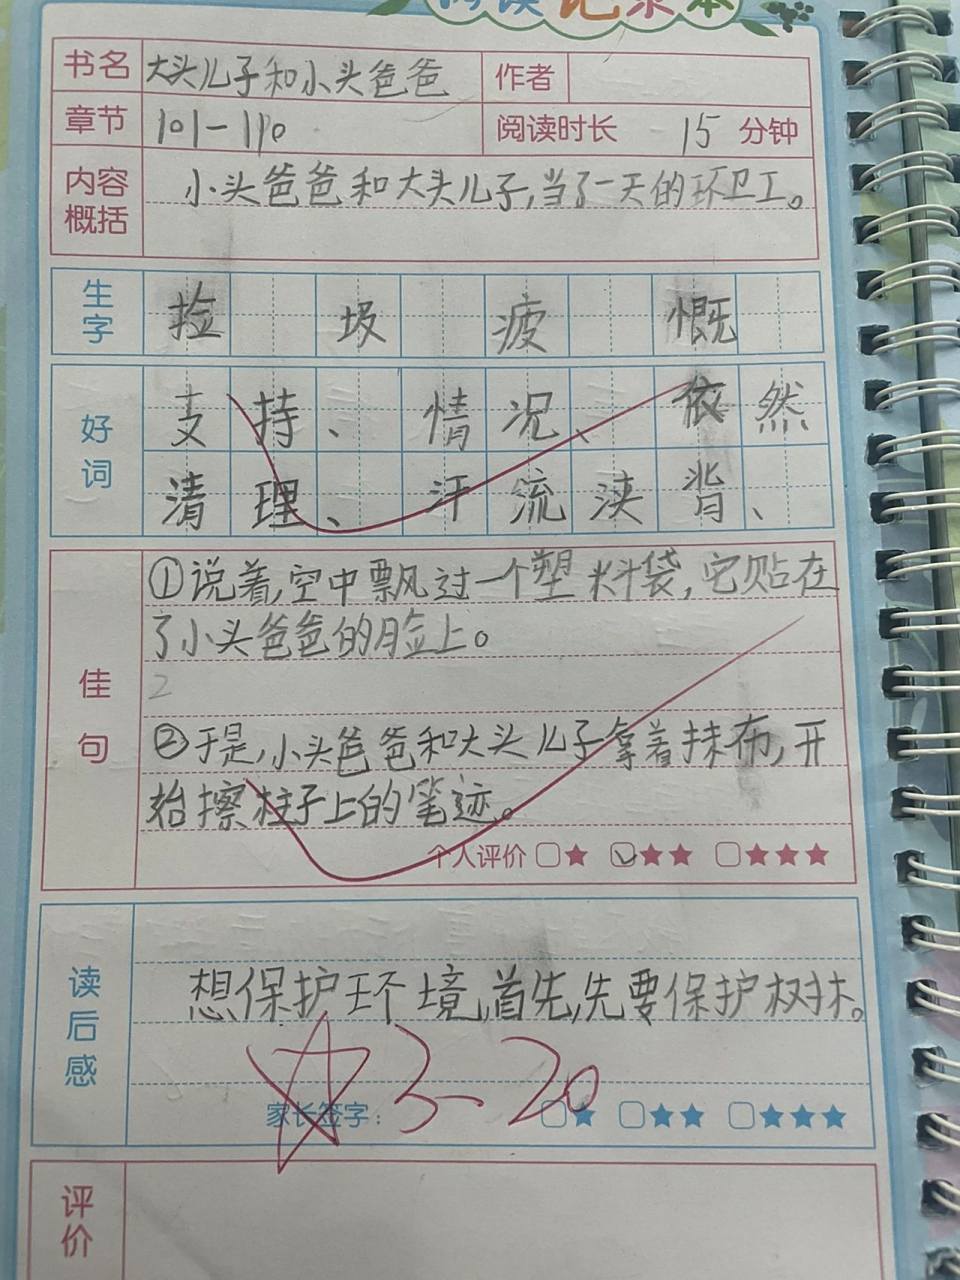 阅读记录本
书名 大头儿子和小头爸爸 作者
章节 101-110 阅读时长 15 分钟
内容概括 小头爸爸和大头儿子,当了一天的环卫工。
生字 捡 圾 疲 慨
好词 支持、情况、依然
清理、汗流浃背、
佳句 ①说着,空中飘过一个塑料袋,它贴在
了小头爸爸的脸上。
2
②于是,小头爸爸和大头儿子拿着抹布,开
始擦柱子上的笔迹。
个人评价
读后感 想保护环境,首先,先要保护树林。
3-20
家长签字：
评价